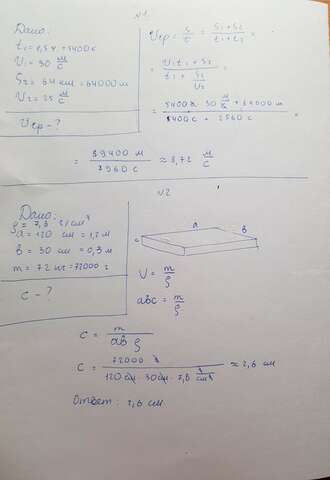 №1
Дано:
t₁ = 1,5 ч = 5400 с
V₁ = 30 м/с
S₂ = 64 км = 64000 м
V₂ = 25 м/с
Vср - ?
Vср = S/t = (S₁+S₂)/(t₁+t₂) =
= (V₁t₁ + S₂)/(t₁ + S₂/V₂) =
= (5400 с · 30 м/с + 64000 м)/(5400 с + 2560 с) =
м/с
№2
Дано:
ρ = 7,8 г/см³
a = 120 см = 1,2 м
b = 30 см = 0,3 м
m = 72 кг = 72000 г
c - ?
a
b
c
V = m/ρ
abc = m/ρ
c = m/(ab ρ)
c = 72000 г/(120 см · 30 см · 7,8 г/см³) ≈ 2,6 см
Ответ: 2,6 см